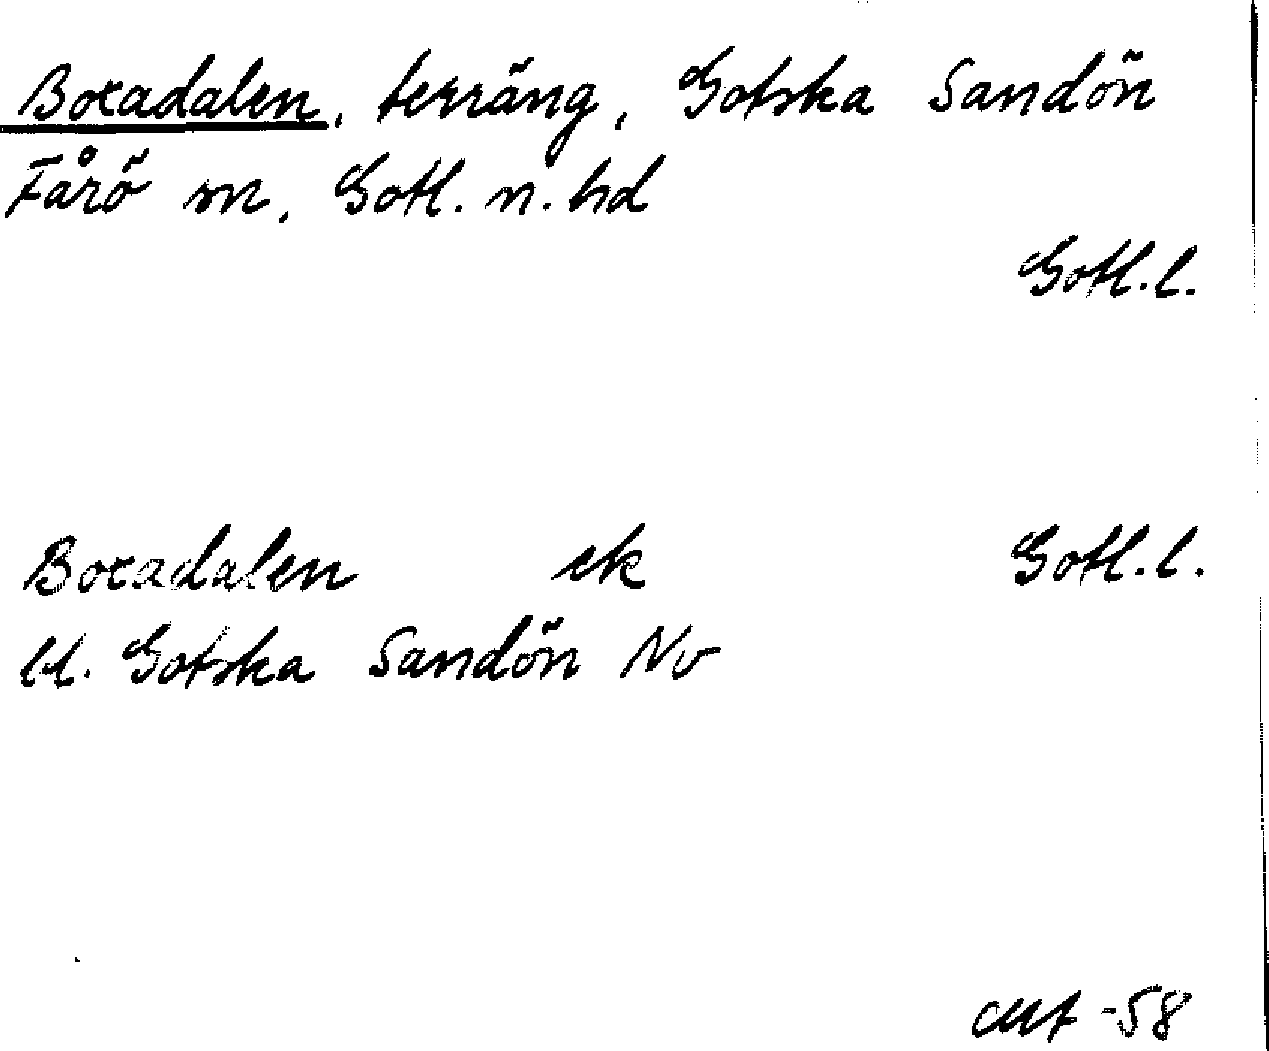 Boxadalen, terräng, Gotska Sandön
Fårö sn, Gotl. n. hd
Gotl. l.
Boxadalen ek Gotl. l.
bl. Gotska Sandön Nv
-58